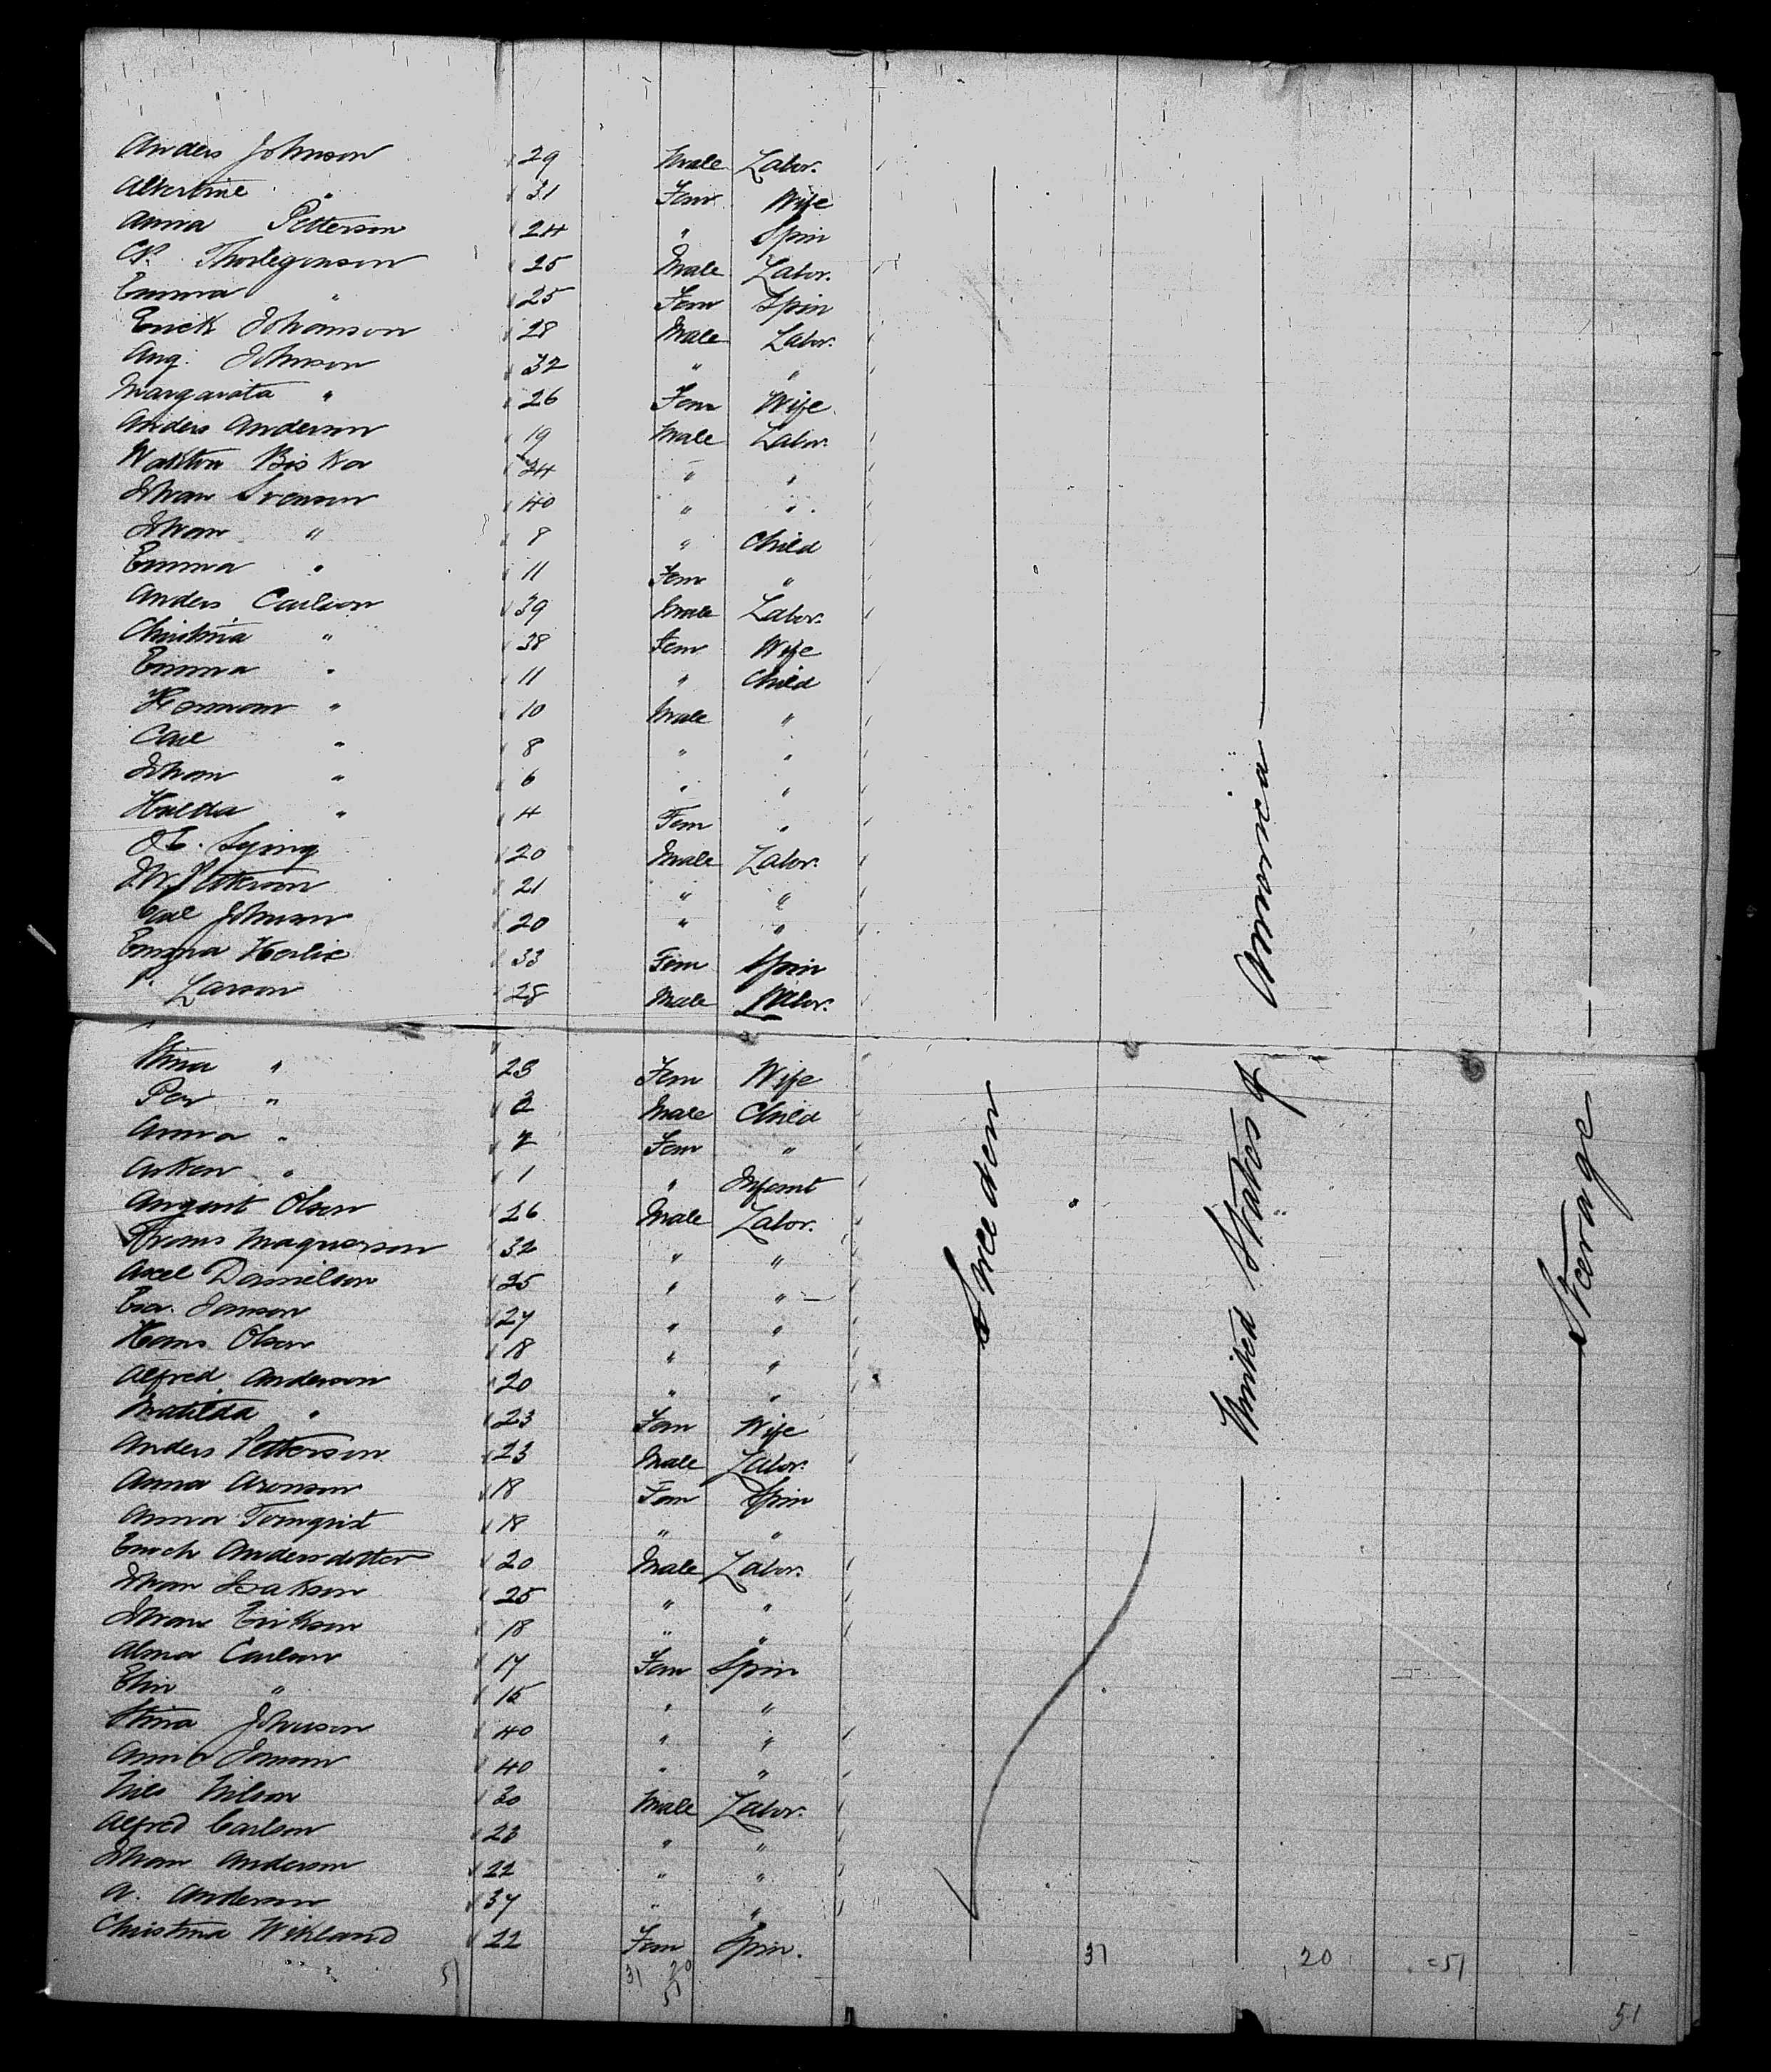 Anders Johnson 29 Male Labor.
Albertine " 31 Fem Wife
Anna Petterson 24 " Spin
25 Male Labor.
Emma " 25 Fem Spin
Erick Johanson 28 Male Labor.
Aug. Johnson 32 " "
Margarata " 26 Fem Wife
Anders Anderson 19 Male Labor.
24 " "
Johan Svenson 40 " "
Johan " 8 " Child
Emma " 11 Fem "
Anders Carlson 39 Male Labor.
Christina " 38 Fem Wife
Emma " 11 " Child
Herman " 10 Male "
Carl " 8 " "
Johan " 6 " "
Hulda " 4 Fem "
20 Male Labor.
Petterson 21 " "
Carl Johnson 20 " "
Emma 33 Fem Spin
P. Larson 28 Male Labor.
Stina " 28 Fem Wife
Per " Male Child
Anna " Fem "
" 1 " Infant
August Olson 26 Male Labor.
Frans Magnerson 32 " "
Axel Danielson 25 " "
Janson 27 " "
Hans Olson 18 " "
Alfred Anderson 20 " "
Matilda " 23 Fem Wife
Anders Petterson 23 Male Labor.
Anna Aronson 18 Fem Spin
Anna Tornquist 18 " "
Andersdotter 20 Male Labor.
Johan Isakson 25 " "
Johan Erikson 18 " "
Alma Carlson 17 Fem Spin
Elin " 15 " "
Stina Johnson 40 " "
Anna Janson 40 " "
Nils Nilson 30 Male Labor.
Alfred Carlson 23 " "
Johan Anderson 22 " "
A. Anderson 37 " "
Christina Wikland 22 Fem Spin.
Sweeden
United States of Ammorica
Steerage
51 31 20 51
31 20 =51
51